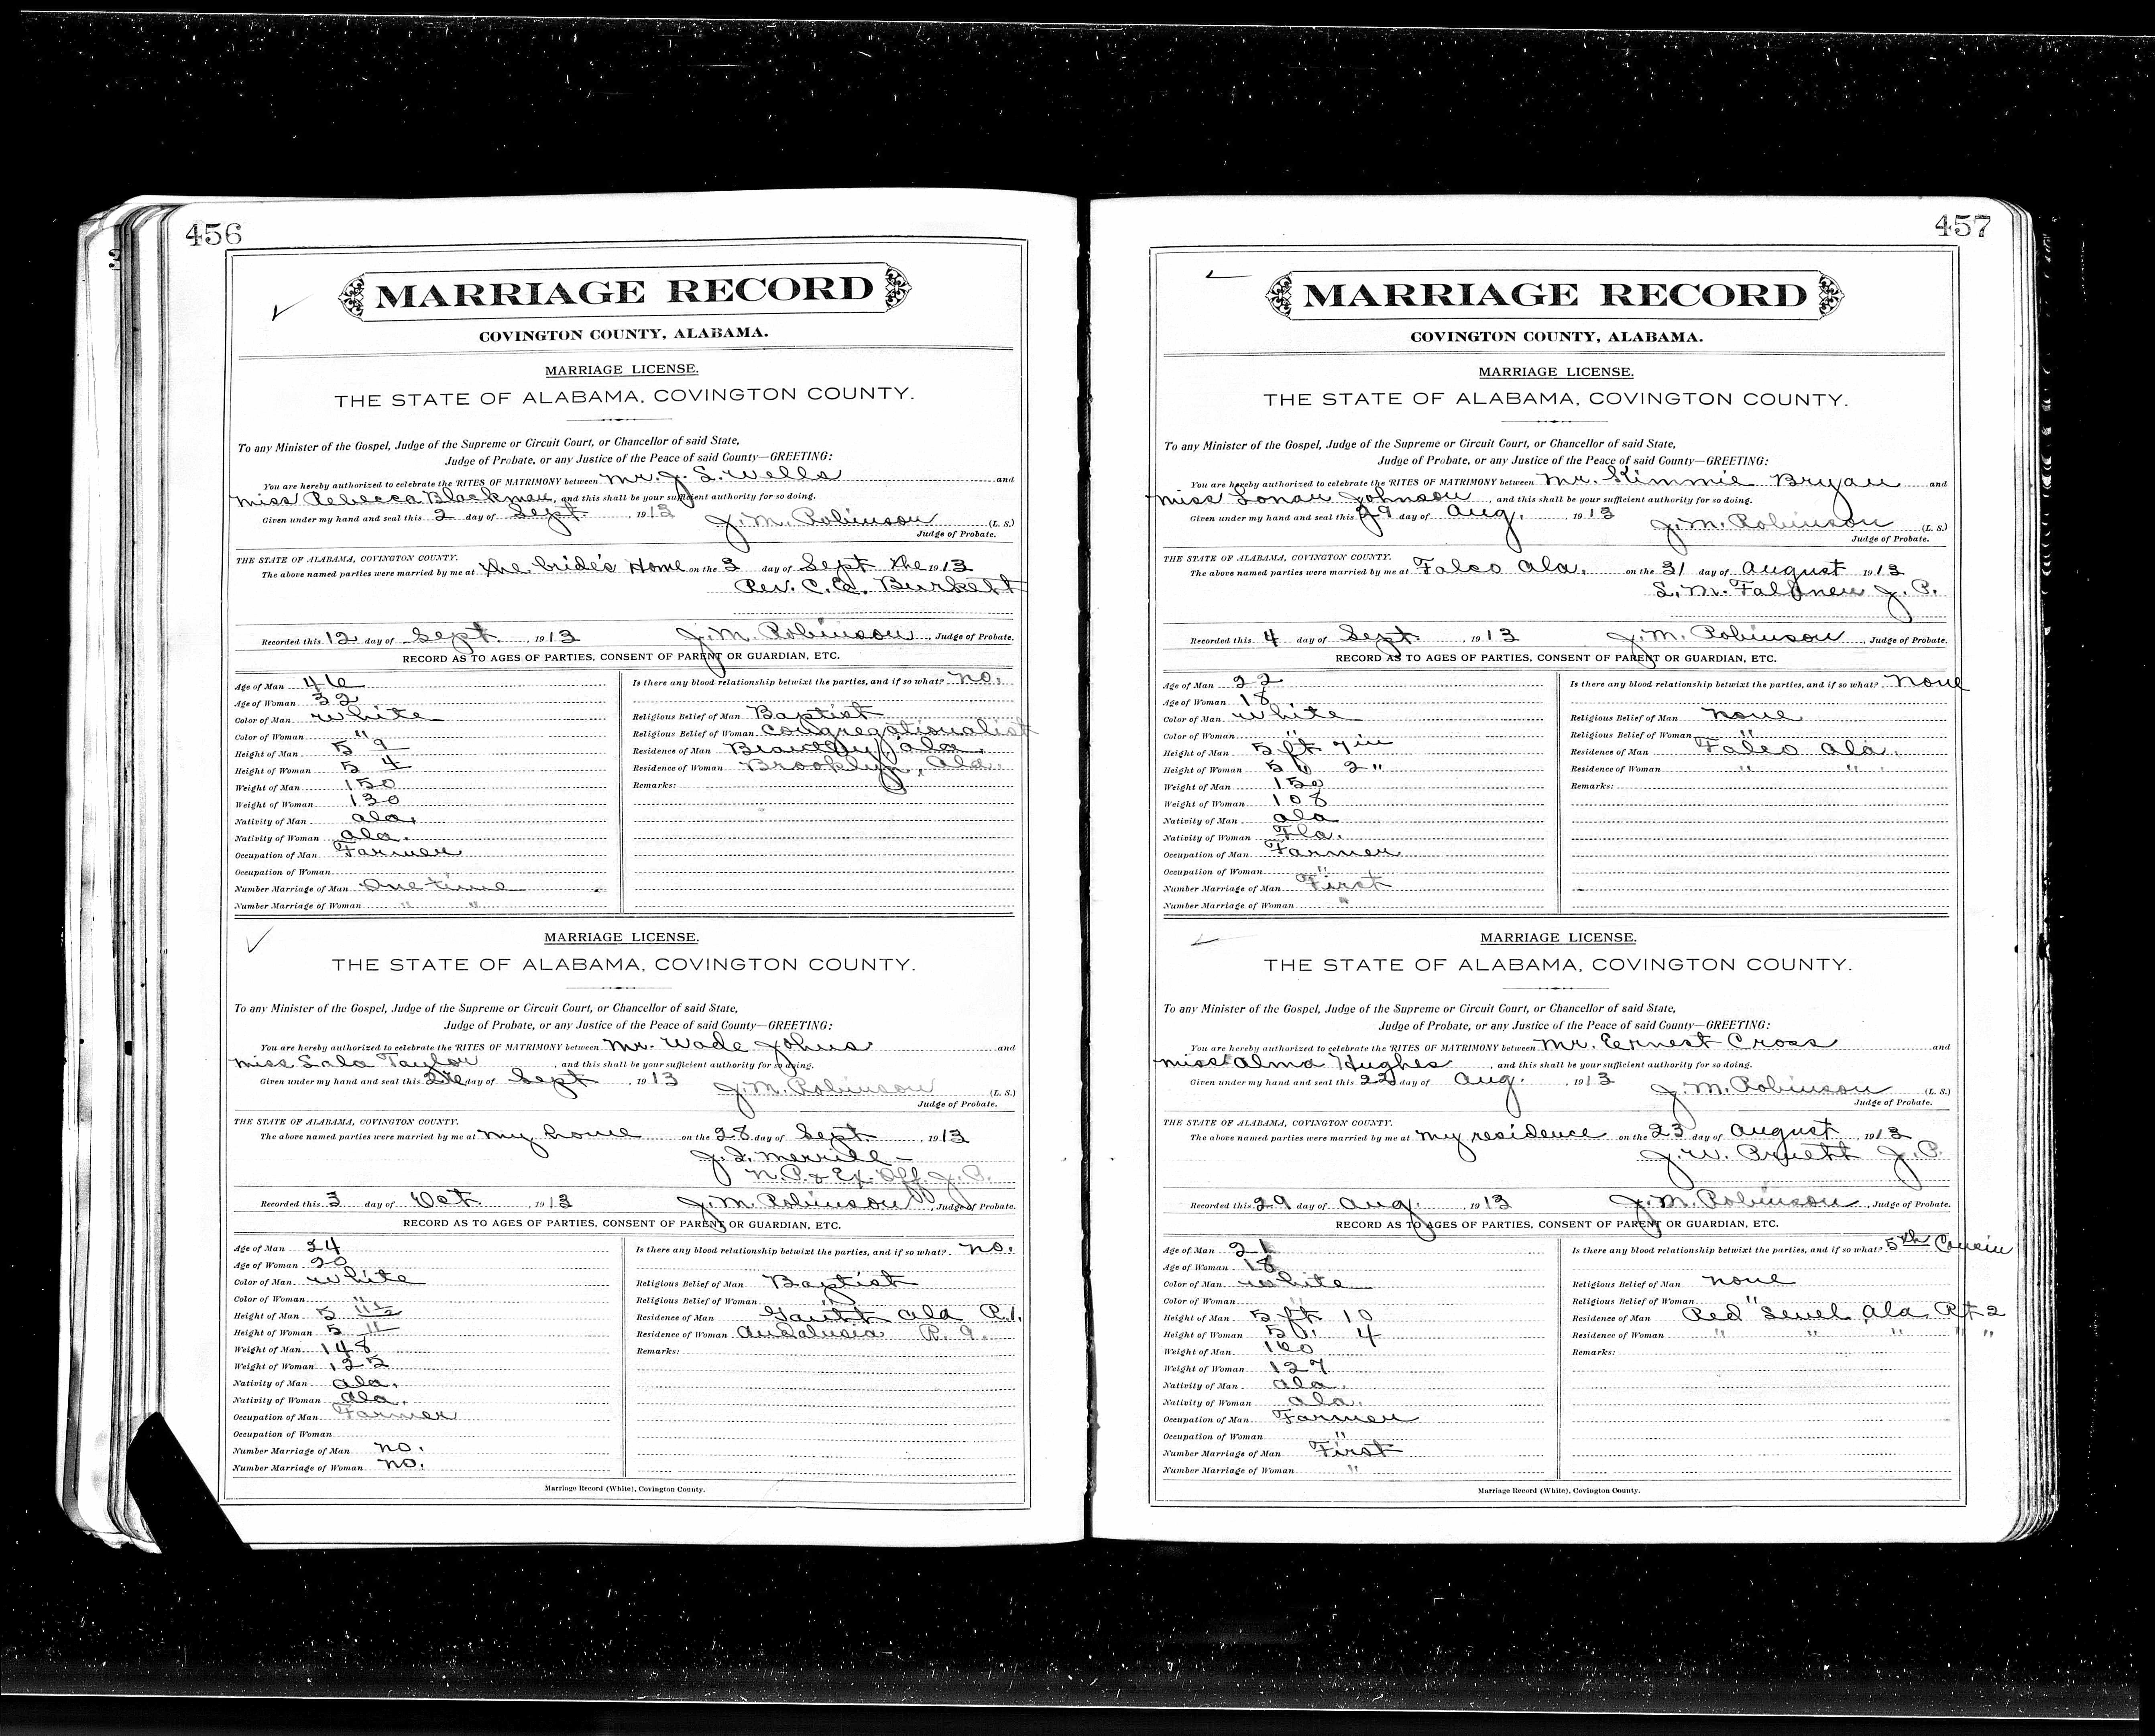 456
MARRIAGE RECORD
COVINGTON COUNTY, ALABAMA.
MARRIAGE LICENSE.
THE STATE OF ALABAMA, COVINGTON COUNTY.
To any Minister of the Gospel, Judge of the Supreme or Circuit Court, or Chancellor of said State,
Judge of Probate, or any Justice of the Peace of said County—GREETING:
You are hereby authorized to celebrate the RITES OF MATRIMONY between Mr. J. S. Wells and
Miss Rebecca Blackman, and this shall be your sufficient authority for so doing.
Given under my hand and seal this 2 day of Sept. 1913 J. M. Robinson (L. S.)
Judge of Probate.
THE STATE OF ALABAMA, COVINGTON COUNTY.
The above named parties were married by me at the bride's Home on the 3 day of Sept the 1913
Rev. C. E. Burkett
Recorded this 12 day of Sept. 1913 J. M. Robinson, Judge of Probate.
RECORD AS TO AGES OF PARTIES, CONSENT OF PARENT OR GUARDIAN, ETC.
Age of Man 46
Age of Woman 32
Color of Man White
Color of Woman "
Height of Man 5 9
Height of Woman 5 4
Weight of Man 150
Weight of Woman 130
Nativity of Man Ala.
Nativity of Woman Ala.
Occupation of Man Farmer
Occupation of Woman
Number Marriage of Man One time
Number Marriage of Woman " "
Is there any blood relationship betwixt the parties, and if so what? No.
Religious Belief of Man Baptist
Religious Belief of Woman Congregationalist
Residence of Man Brantley, Ala.
Residence of Woman Brooklyn, Ala.
Remarks:
MARRIAGE LICENSE.
THE STATE OF ALABAMA, COVINGTON COUNTY.
To any Minister of the Gospel, Judge of the Supreme or Circuit Court, or Chancellor of said State,
Judge of Probate, or any Justice of the Peace of said County—GREETING:
You are hereby authorized to celebrate the RITES OF MATRIMONY between Mr. Wade Johns and
Miss Lula Taylor, and this shall be your sufficient authority for so doing.
Given under my hand and seal this day of Sept 1913 J. M. Robinson (L. S.)
Judge of Probate.
THE STATE OF ALABAMA, COVINGTON COUNTY.
The above named parties were married by me at my home on the 28 day of Sept 1913
J. I. Merrill
N. P. & Ex. Off. J. P.
Recorded this 3 day of Oct 1913 J. M. Robinson, Judge of Probate.
RECORD AS TO AGES OF PARTIES, CONSENT OF PARENT OR GUARDIAN, ETC.
Age of Man 24
Age of Woman 20
Color of Man White
Color of Woman "
Height of Man 5 11½
Height of Woman 5 11
Weight of Man 148
Weight of Woman 125
Nativity of Man Ala.
Nativity of Woman Ala.
Occupation of Man Farmer
Occupation of Woman
Number Marriage of Man no.
Number Marriage of Woman no.
Is there any blood relationship betwixt the parties, and if so what? No.
Religious Belief of Man Baptist
Religious Belief of Woman "
Residence of Man Gantt Ala R.1.
Residence of Woman Andalusia R. 9.
Remarks:
Marriage Record (White), Covington County.
457
MARRIAGE RECORD
COVINGTON COUNTY, ALABAMA.
MARRIAGE LICENSE.
THE STATE OF ALABAMA, COVINGTON COUNTY.
To any Minister of the Gospel, Judge of the Supreme or Circuit Court, or Chancellor of said State,
Judge of Probate, or any Justice of the Peace of said County—GREETING:
You are hereby authorized to celebrate the RITES OF MATRIMONY between Mr. Kimmie Bryan and
Miss Lonau Johnson, and this shall be your sufficient authority for so doing.
Given under my hand and seal this 29 day of Aug. 1913 J. M. Robinson (L. S.)
Judge of Probate.
THE STATE OF ALABAMA, COVINGTON COUNTY.
The above named parties were married by me at Falco Ala. on the 31 day of August 1913
S. M. Falkner J. P.
Recorded this 4 day of Sept 1913 J. M. Robinson, Judge of Probate.
RECORD AS TO AGES OF PARTIES, CONSENT OF PARENT OR GUARDIAN, ETC.
Age of Man 22
Age of Woman 18
Color of Man White
Color of Woman "
Height of Man 5 ft 7 in
Height of Woman 5 " 2 "
Weight of Man 150
Weight of Woman 108
Nativity of Man Ala
Nativity of Woman Fla.
Occupation of Man Farmer
Occupation of Woman "
Number Marriage of Man First
Number Marriage of Woman "
Is there any blood relationship betwixt the parties, and if so what? None
Religious Belief of Man None
Religious Belief of Woman "
Residence of Man Falco Ala.
Residence of Woman " "
Remarks:
MARRIAGE LICENSE.
THE STATE OF ALABAMA, COVINGTON COUNTY.
To any Minister of the Gospel, Judge of the Supreme or Circuit Court, or Chancellor of said State,
Judge of Probate, or any Justice of the Peace of said County—GREETING:
You are hereby authorized to celebrate the RITES OF MATRIMONY between Mr. Ernest Cross and
Miss Alma Hughes, and this shall be your sufficient authority for so doing.
Given under my hand and seal this 22 day of Aug. 1913 J. M. Robinson (L. S.)
Judge of Probate.
THE STATE OF ALABAMA, COVINGTON COUNTY.
The above named parties were married by me at my residence on the 23 day of August 1913
J. W. Pruett J. P.
Recorded this 29 day of Aug. 1913 J. M. Robinson, Judge of Probate.
RECORD AS TO AGES OF PARTIES, CONSENT OF PARENT OR GUARDIAN, ETC.
Age of Man 21
Age of Woman 18
Color of Man White
Color of Woman "
Height of Man 5 ft 10
Height of Woman 5 " 4
Weight of Man 160
Weight of Woman 127
Nativity of Man Ala.
Nativity of Woman Ala.
Occupation of Man Farmer
Occupation of Woman "
Number Marriage of Man First
Number Marriage of Woman "
Is there any blood relationship betwixt the parties, and if so what? 5th Cousin
Religious Belief of Man None
Religious Belief of Woman "
Residence of Man Red Level, Ala. Rt 2
Residence of Woman " " " " "
Remarks:
Marriage Record (White), Covington County.